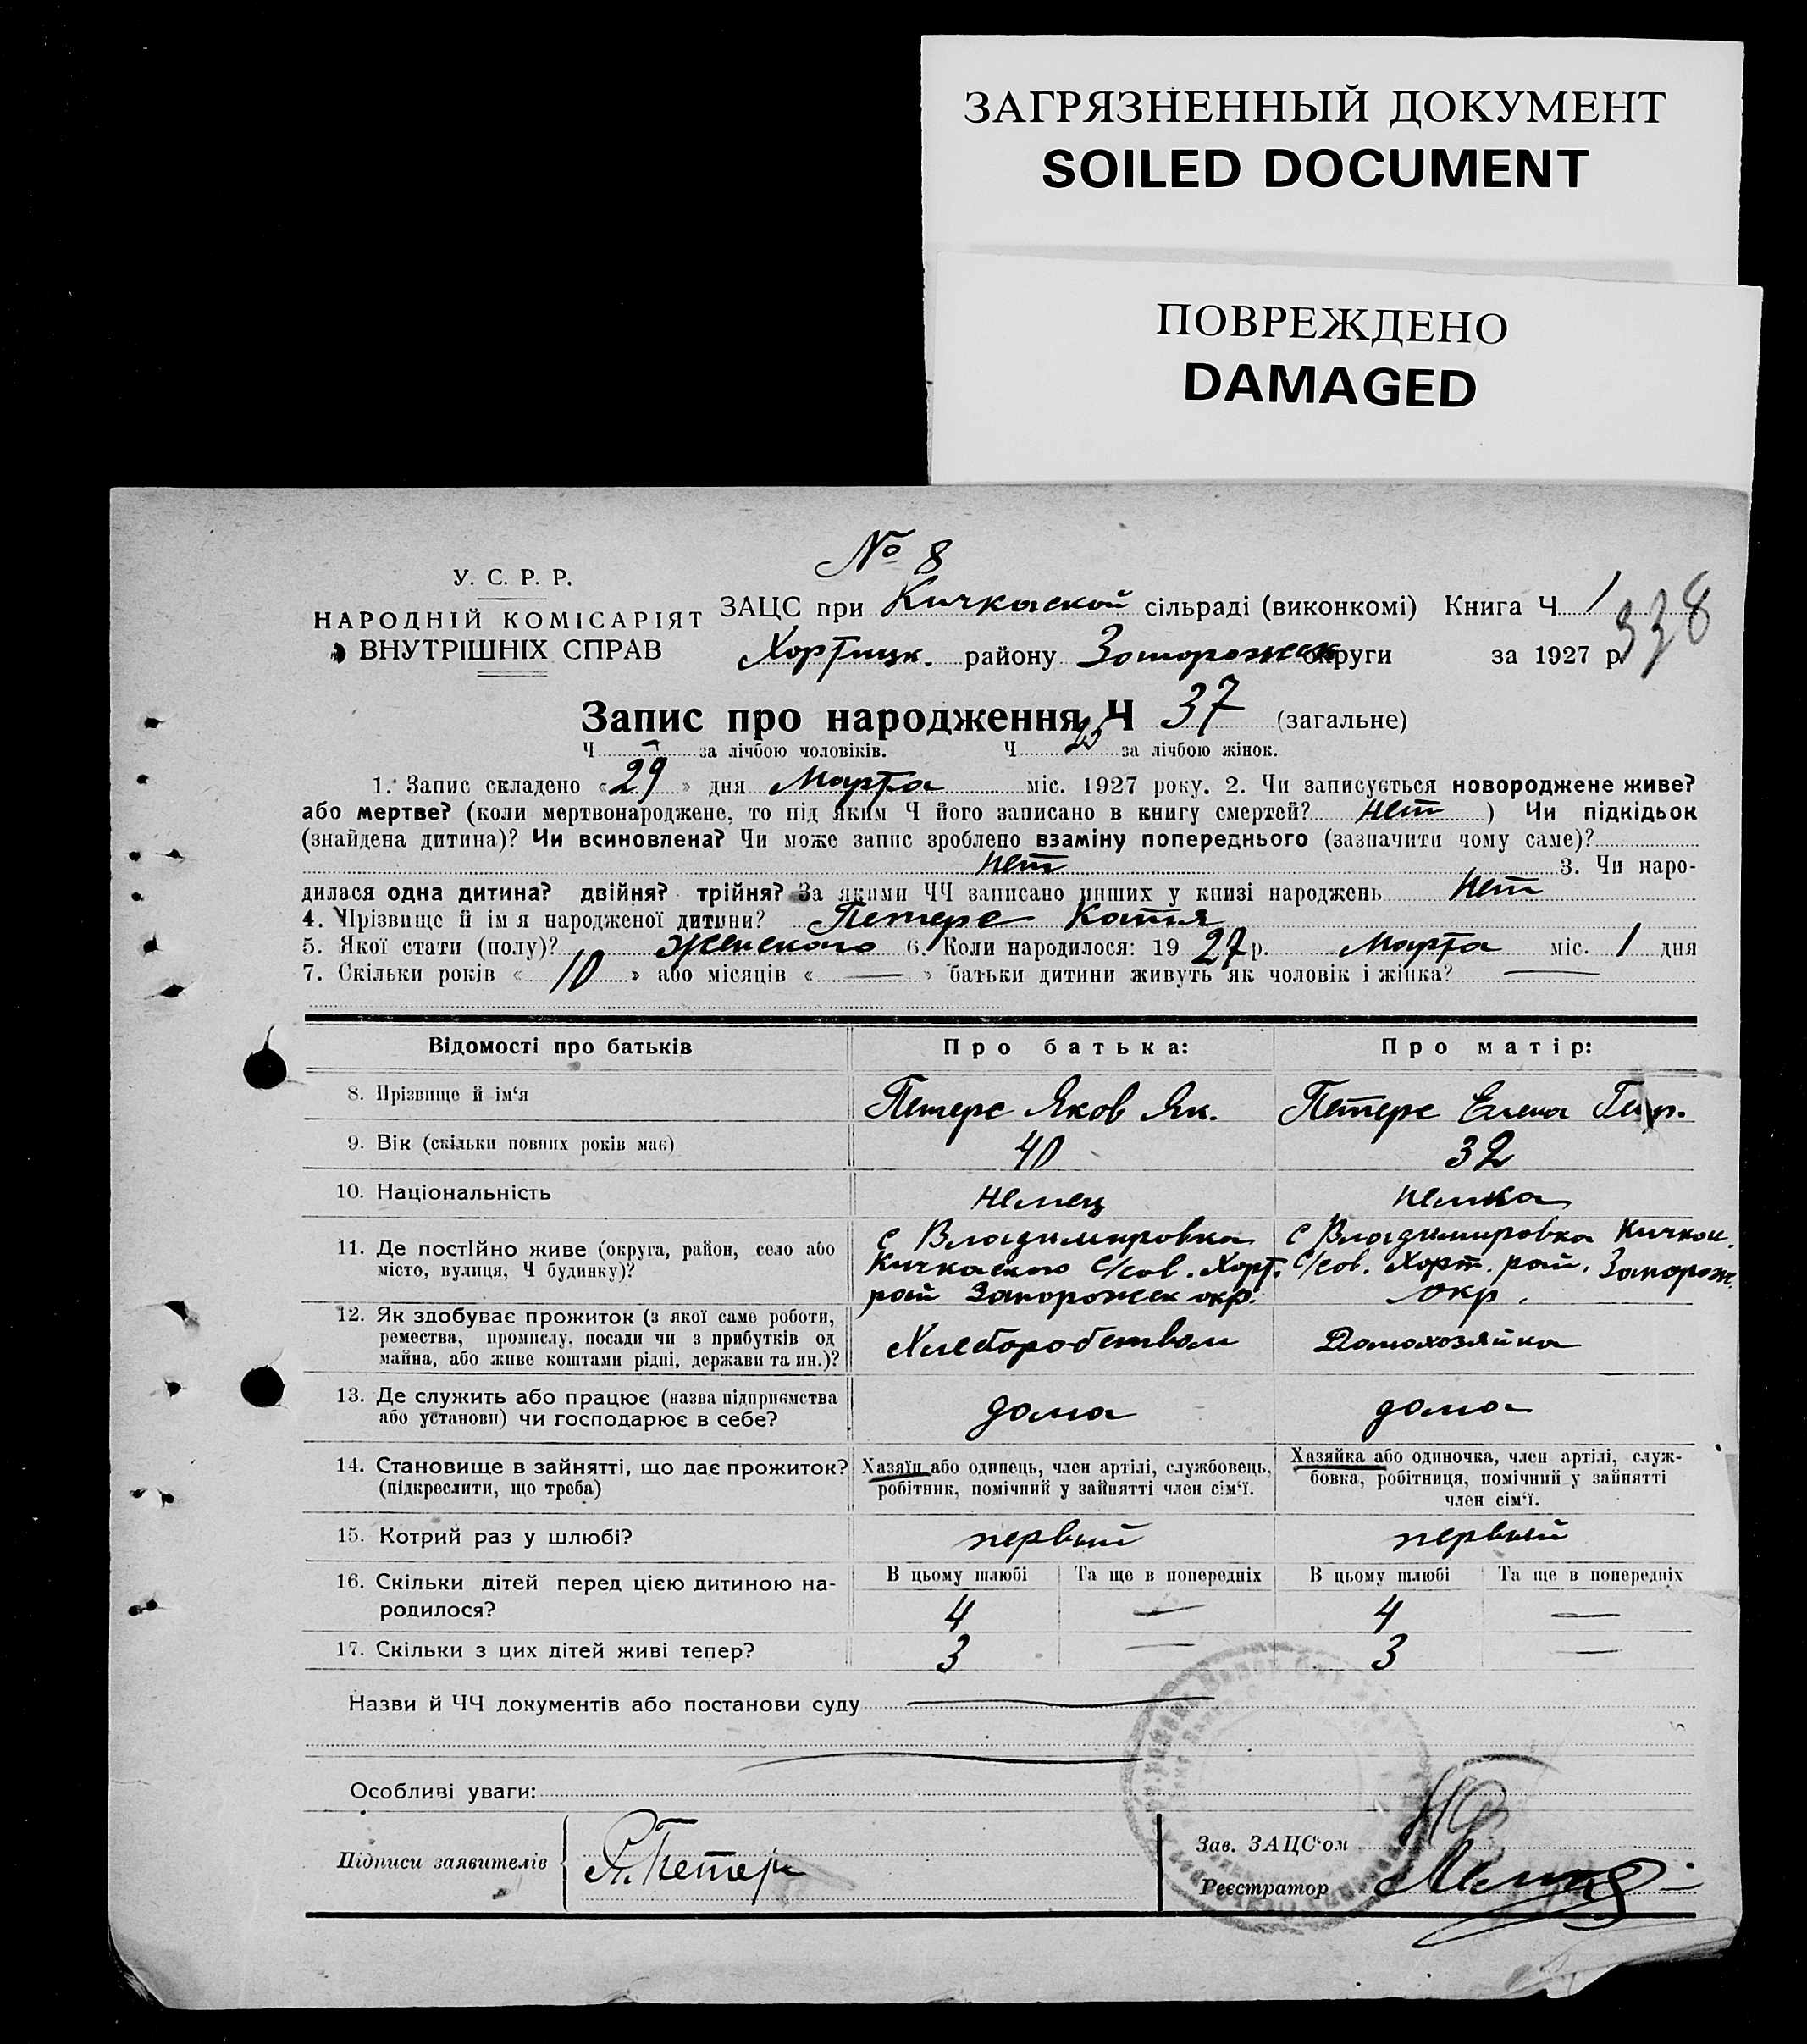 ЗАГРЯЗНЕННЫЙ ДОКУМЕНТ
SOILED DOCUMENT
ПОВРЕЖДЕНО
DAMAGED
№ 8
У. С. Р. Р.
НАРОДНІЙ КОМІСАРІЯТ
ВНУТРІШНІХ СПРАВ
ЗАЦС при Кичкаской сільраді (виконкомі) Книга Ч 1
338
Хортицк. району Запорожск округи за 1927 р.
Запис про народження Ч 37 (загальне)
Ч — за лічбою чоловіків. Ч 25 за лічбою жінок.
1. Запис складено «29» дня Марта міс. 1927 року. 2. Чи записується новороджене живе?
або мертве? (коли мертвонароджене, то під яким Ч його записано в книгу смертей? нет ) Чи підкідьок
(знайдена дитина)? Чи всиновлена? Чи може запис зроблено взаміну попереднього (зазначити чому саме)?
нет 3. Чи наро-
дилася одна дитина? двійня? трійня? За якими ЧЧ записано инших у книзі народжень нет
4. Прізвище й імя народженої дитини? Петерс Катя
5. Якої стати (полу)? Женского 6. Коли народилося: 1927 р. Марта міс. 1 дня
7. Скільки років « 10 » або місяців « — » батьки дитини живуть як чоловік і жінка? —
Відомості про батьків Про батька: Про матір:
8. Прізвище й ім‘я Петерс Яков Як. Петерс Елена
9. Вік (скільки повних років має) 40 32
10. Національність Немец немка
11. Де постІйно живе (округа, район, село або місто, вулиця, Ч будинку)?
с Владимировка
Кичкаского с/сов. Хорт.
рай Запорожск окр.
с Владимировка Кичкас.
с/сов. Хорт. рай. Запорож.
окр.
12. Як здобуває прожиток (з якої саме роботи,
ремества, промислу, посади чи з прибутків од
майна, або живе коштами рідні, держави та ин.)?
Хлеборобством Домохозяйка
13. Де служить або працює (назва підприємства
або установи) чи господарює в себе?
дома дома
14. Становище в зайнятті, що дає прожиток?
(підкреслити, що треба)
Хазяїн або одинець, член артілі, службовець,
робітник, помічний у зайнятті член сім‘ї.
Хазяйка або одиночка, член артілі, служ-
бовка, робітниця, помічний у зайнятті
член сім‘ї.
15. Котрий раз у шлюбі? первый первый
16. Скільки дітей перед цією дитиною на-
родилося?
В цьому шлюбі Та ще в попередніх В цьому шлюбі Та ще в попередніх
4 — 4 —
17. Скільки з цих дітей живі тепер? 3 — 3 —
Назви й ЧЧ документів або постанови суду —
Особливі уваги:
Підписи заявителів Я. Петерс
Зав. ЗАЦС‘ом
Реєстратор